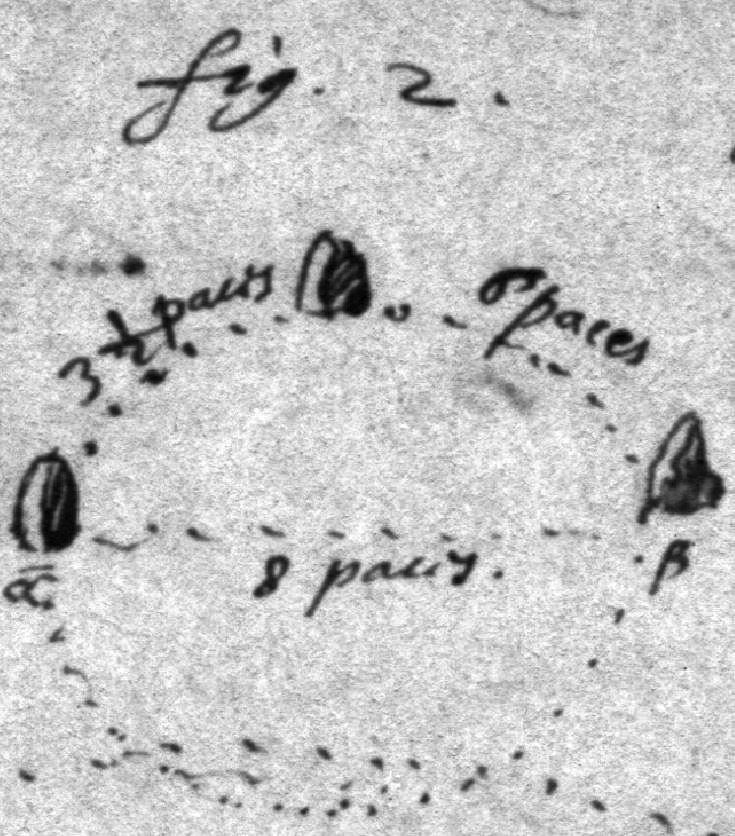 fig. 2.
3 ½ paces
5 paces
8 paces.
α
β